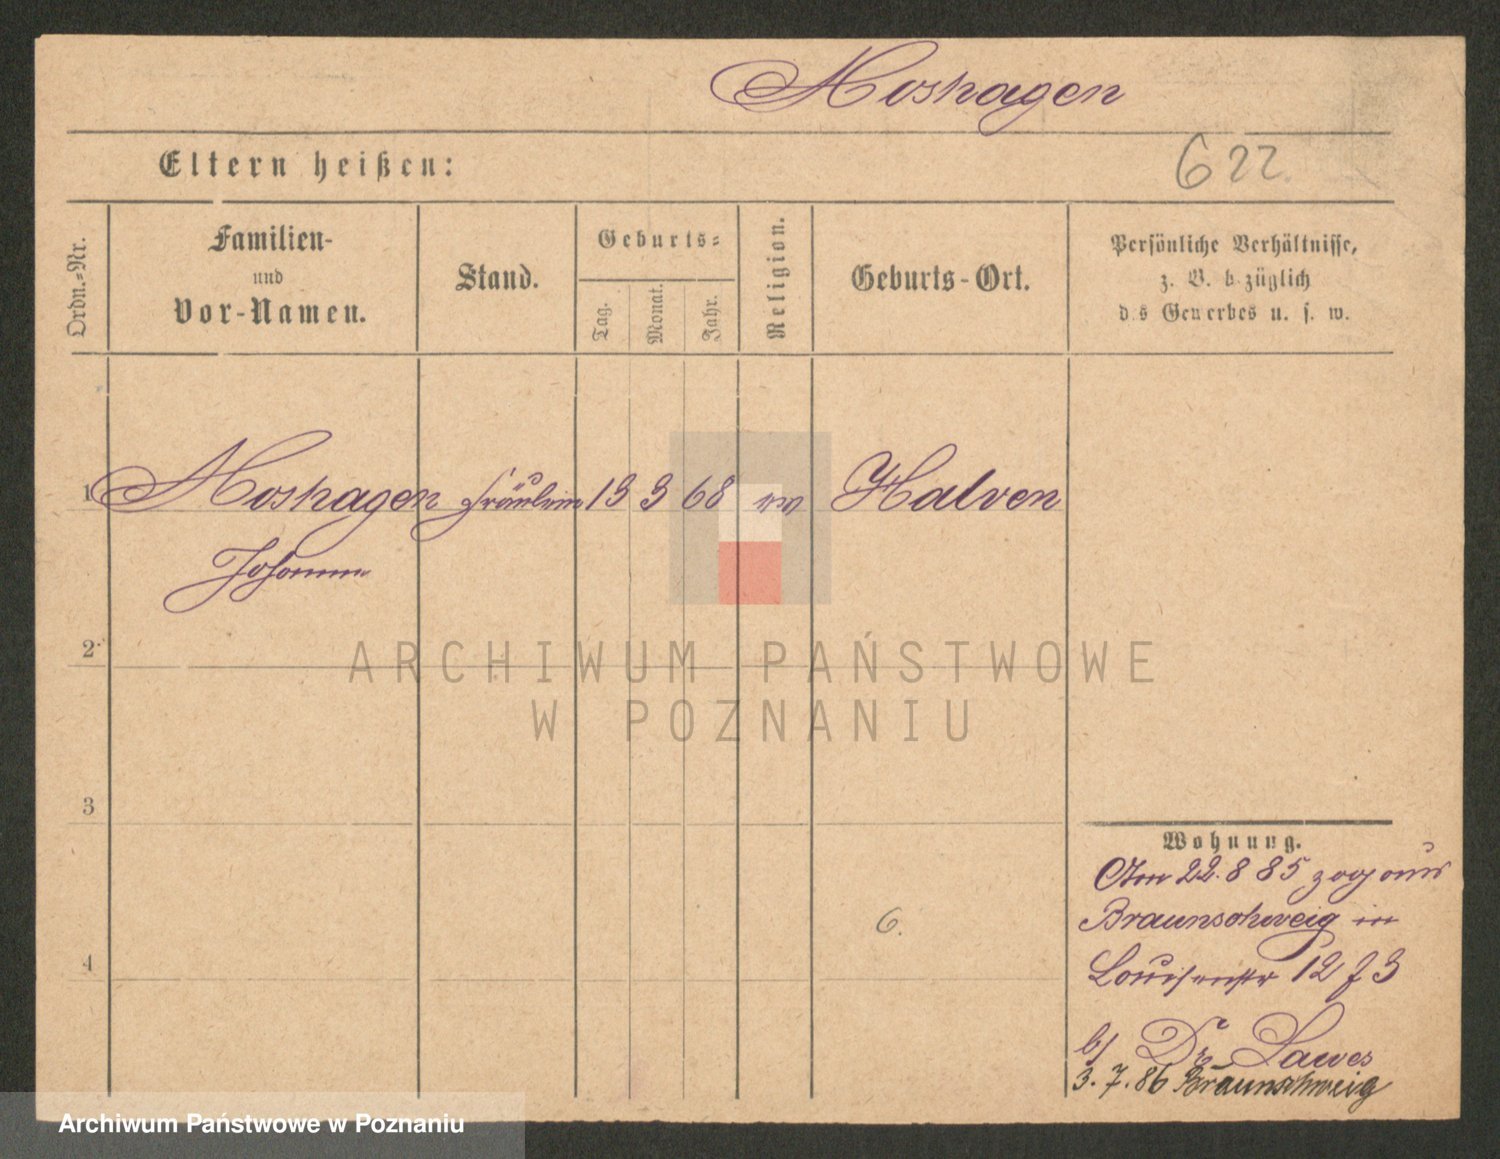 Moshagen
Eltern heißen:
622.
Ordn.-Nr.
Familien-
und
Vor-Namen.
Stand.
Geburts-
Tag.
Monat.
Jahr.
Religion.
Geburts-Ort.
Persönliche Verhältnisse,
z. B. b züglich
d s Gewerbes u. s. w.
1 Moshagen Fräulein 13 3 68 ev Halven
Johanna
2
3
4
6.
Wohnung.
Am 22.8 85 zog aus
Braunschweig in
Louisenstr 12 f 3
b/ Dr. Lawes
3.7.86 Braunschweig
ARCHIWUM PAŃSTWOWE
W POZNANIU
Archiwum Państwowe w Poznaniu